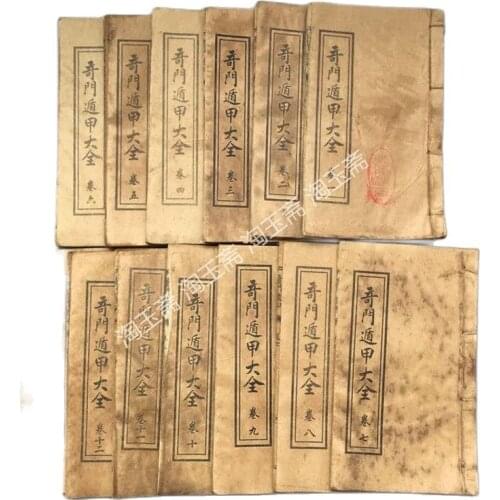 奇門遁甲大全
奇門遁甲大全 卷二
奇門遁甲大全 卷三
奇門遁甲大全 卷四
奇門遁甲大全 卷五
奇門遁甲大全 卷六
奇門遁甲大全 卷七
奇門遁甲大全 卷八
奇門遁甲大全 卷九
奇門遁甲大全 卷十
奇門遁甲大全 卷十一
奇門遁甲大全 卷十二
淘玉斋 淘玉斋 淘玉斋 淘玉斋